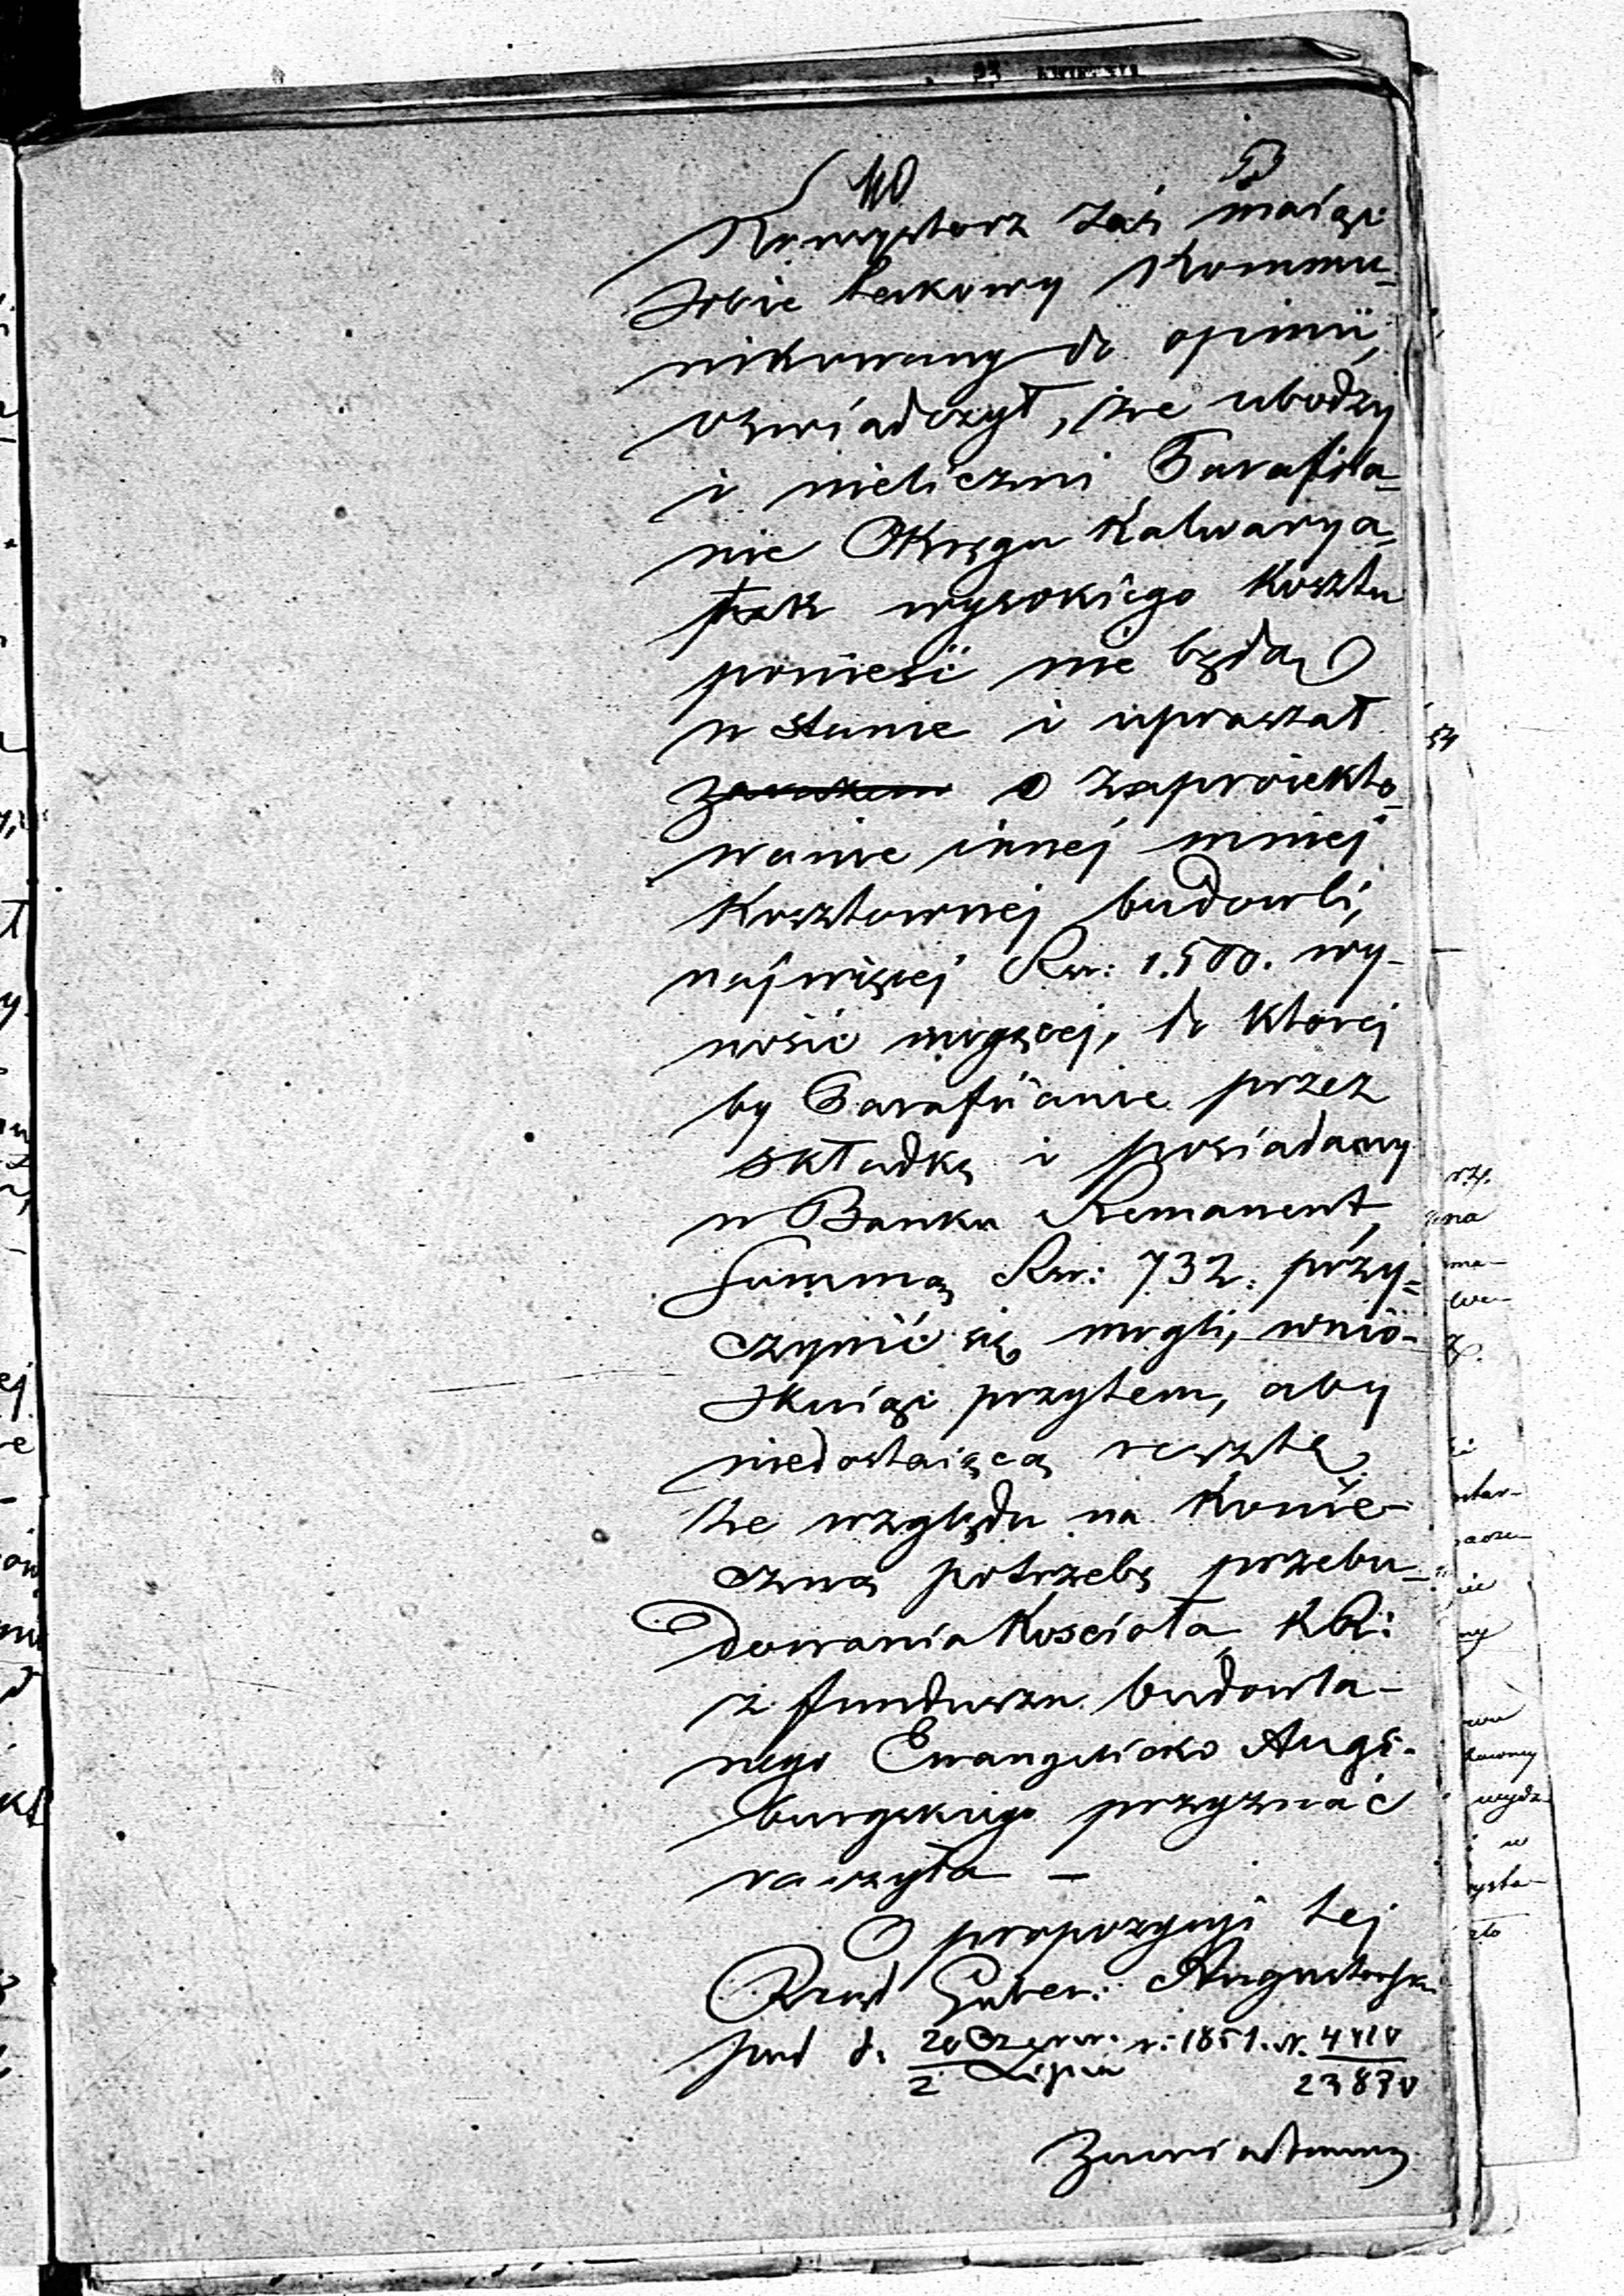 110 53
Konsystorz zaś maiąc
sobie takowy Kommu-
nikowany do opinii,
oświadczył, że ubodzy
i nieliczni Parafia-
nie Okręgu Kalwarya
tak wysokiego kosztu
ponieść nie będą
w stanie i upraszał
zarazem o zaproiekto-
wanie innej mniej
kosztownej budowli,
najwięcej Rsr: 1.500. wy-
nosić mogącej, do ktorej
by Parafiianie przez
składkę i posiadany
w Banku Remanent
Summą Rsr: 732. przy-
czynić się mogli, wnio-
skuiąc przytem, aby
niedostaiącą resztę
ze względu na konie-
czną potrzebę przebu-
dowania Kościoła KR:
z funduszu budowla-
nego Ewangelicko Augs-
burgskiego przyznać
raczyła –
O propozycyi tej
Rząd Guber: Augustowski
pod d. 20 Czerw. / 2 Lipca r: 1851. N.
zawiadomiony